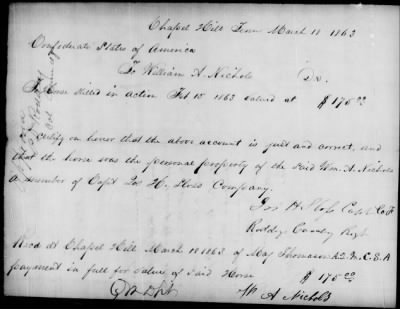 Chapel Hill Tenn March 18 1863
Confederate States of America
To William A. Nichols Dr.
To Horse killed in action Feb 15 1863 valued at $175.00
I certify on honor that the above account is just and correct, and
that the horse was the personal property of the said Wm. A. Nichols
a member of Capt Jos H. Company.
Jos H Capt Co F
Cavalry Regt
Recd at Chapel Hill March 18 1863 of Maj Thomason A.Q.M. C.S.A
payment in full for value of said Horse $175.00
W A Nichols